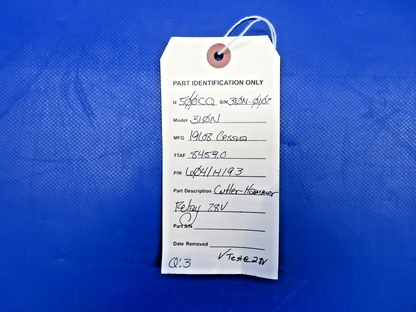 PART IDENTIFICATION ONLY
N 500CQ S/N 310N-0102
Model 310N
MFG 1968 Cessna
TTAF 8459.0
P/N 6041H193
Part Description Cutler-Hammer
Relay 28V
Part S/N
Date Removed
Q:3 √ Test@28V